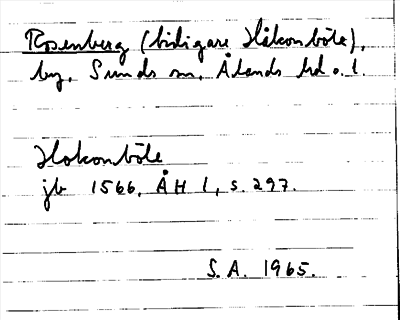 Rosenberg (tidigare Håkonböle),
by, Sunds sn, Ålands hd o. l.
Hokonböle
jb 1566, ÅH 1, s. 297.
S. A. 1965.